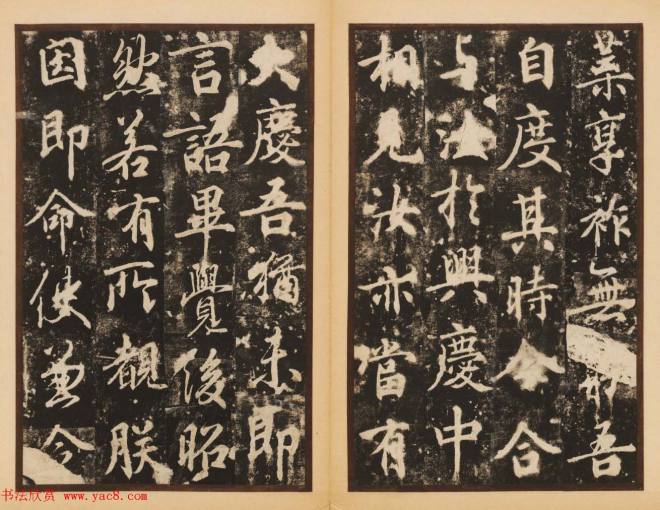 葉享祚無吾
自度其時合
与於興慶中
相見汝亦當有
大慶吾猶未即
言語畢覺後昭
然若有所覩朕
因即命使兼令
书法欣赏 www.yac8.com